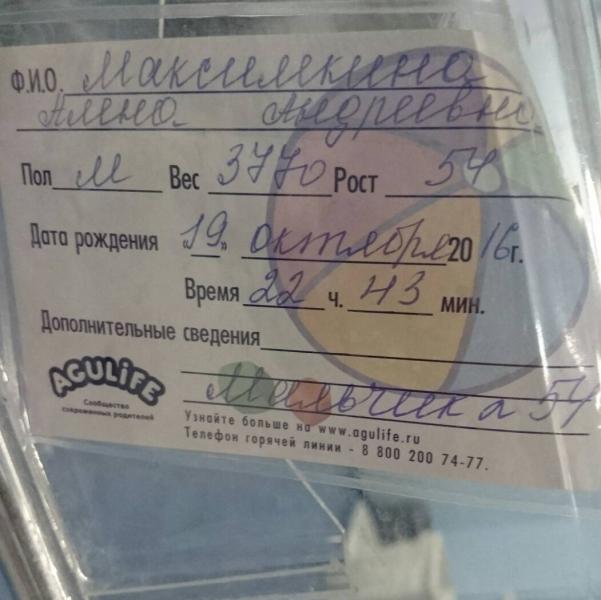 Ф.И.О. Максимкина
Алена Андреевна
Пол м Вес 3770 Рост 54
Дата рождения «19» октября 2016г.
Время 22 ч. 43 мин.
Дополнительные сведения
Мальчик а 54
AGULIFE
Сообщество
современных родителей
Узнайте больше на www.agulife.ru
Телефон горячей линии - 8 800 200 74-77.